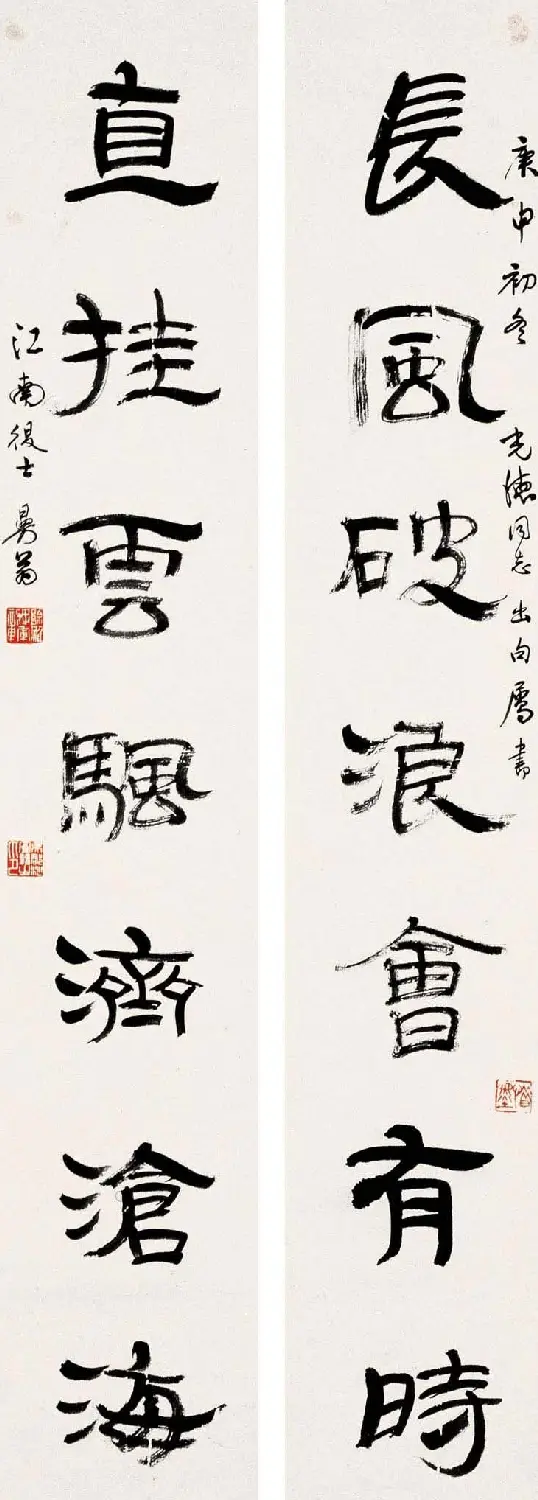 長風破浪會有時
庚申初冬 光德同志出向屬書
直挂雲颿濟滄海
江南後士